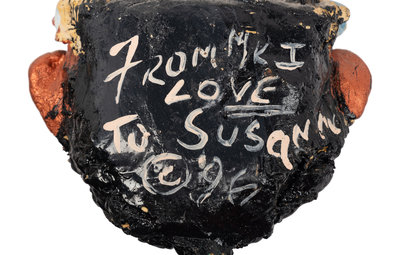 FROM MR I
LOVE
TO SUSANNE
© '96